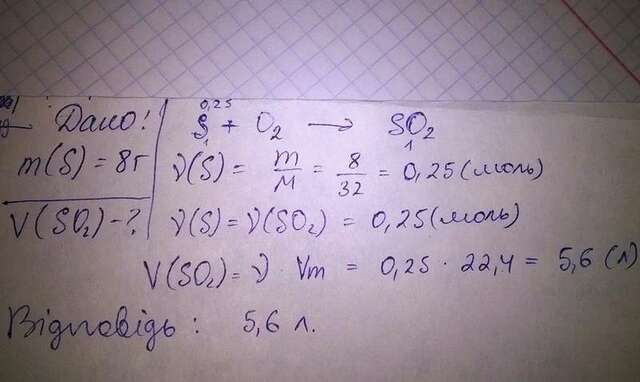 Дано!
m(S) = 8г
V(SO2) - ?
0,25
S + O2 → SO2
1 1
ν(S) = m/M = 8/32 = 0,25 (моль)
ν(S) = ν(SO2) = 0,25 (моль)
V(SO2) = ν · Vm = 0,25 · 22,4 = 5,6 (л)
Відповідь : 5,6 л.